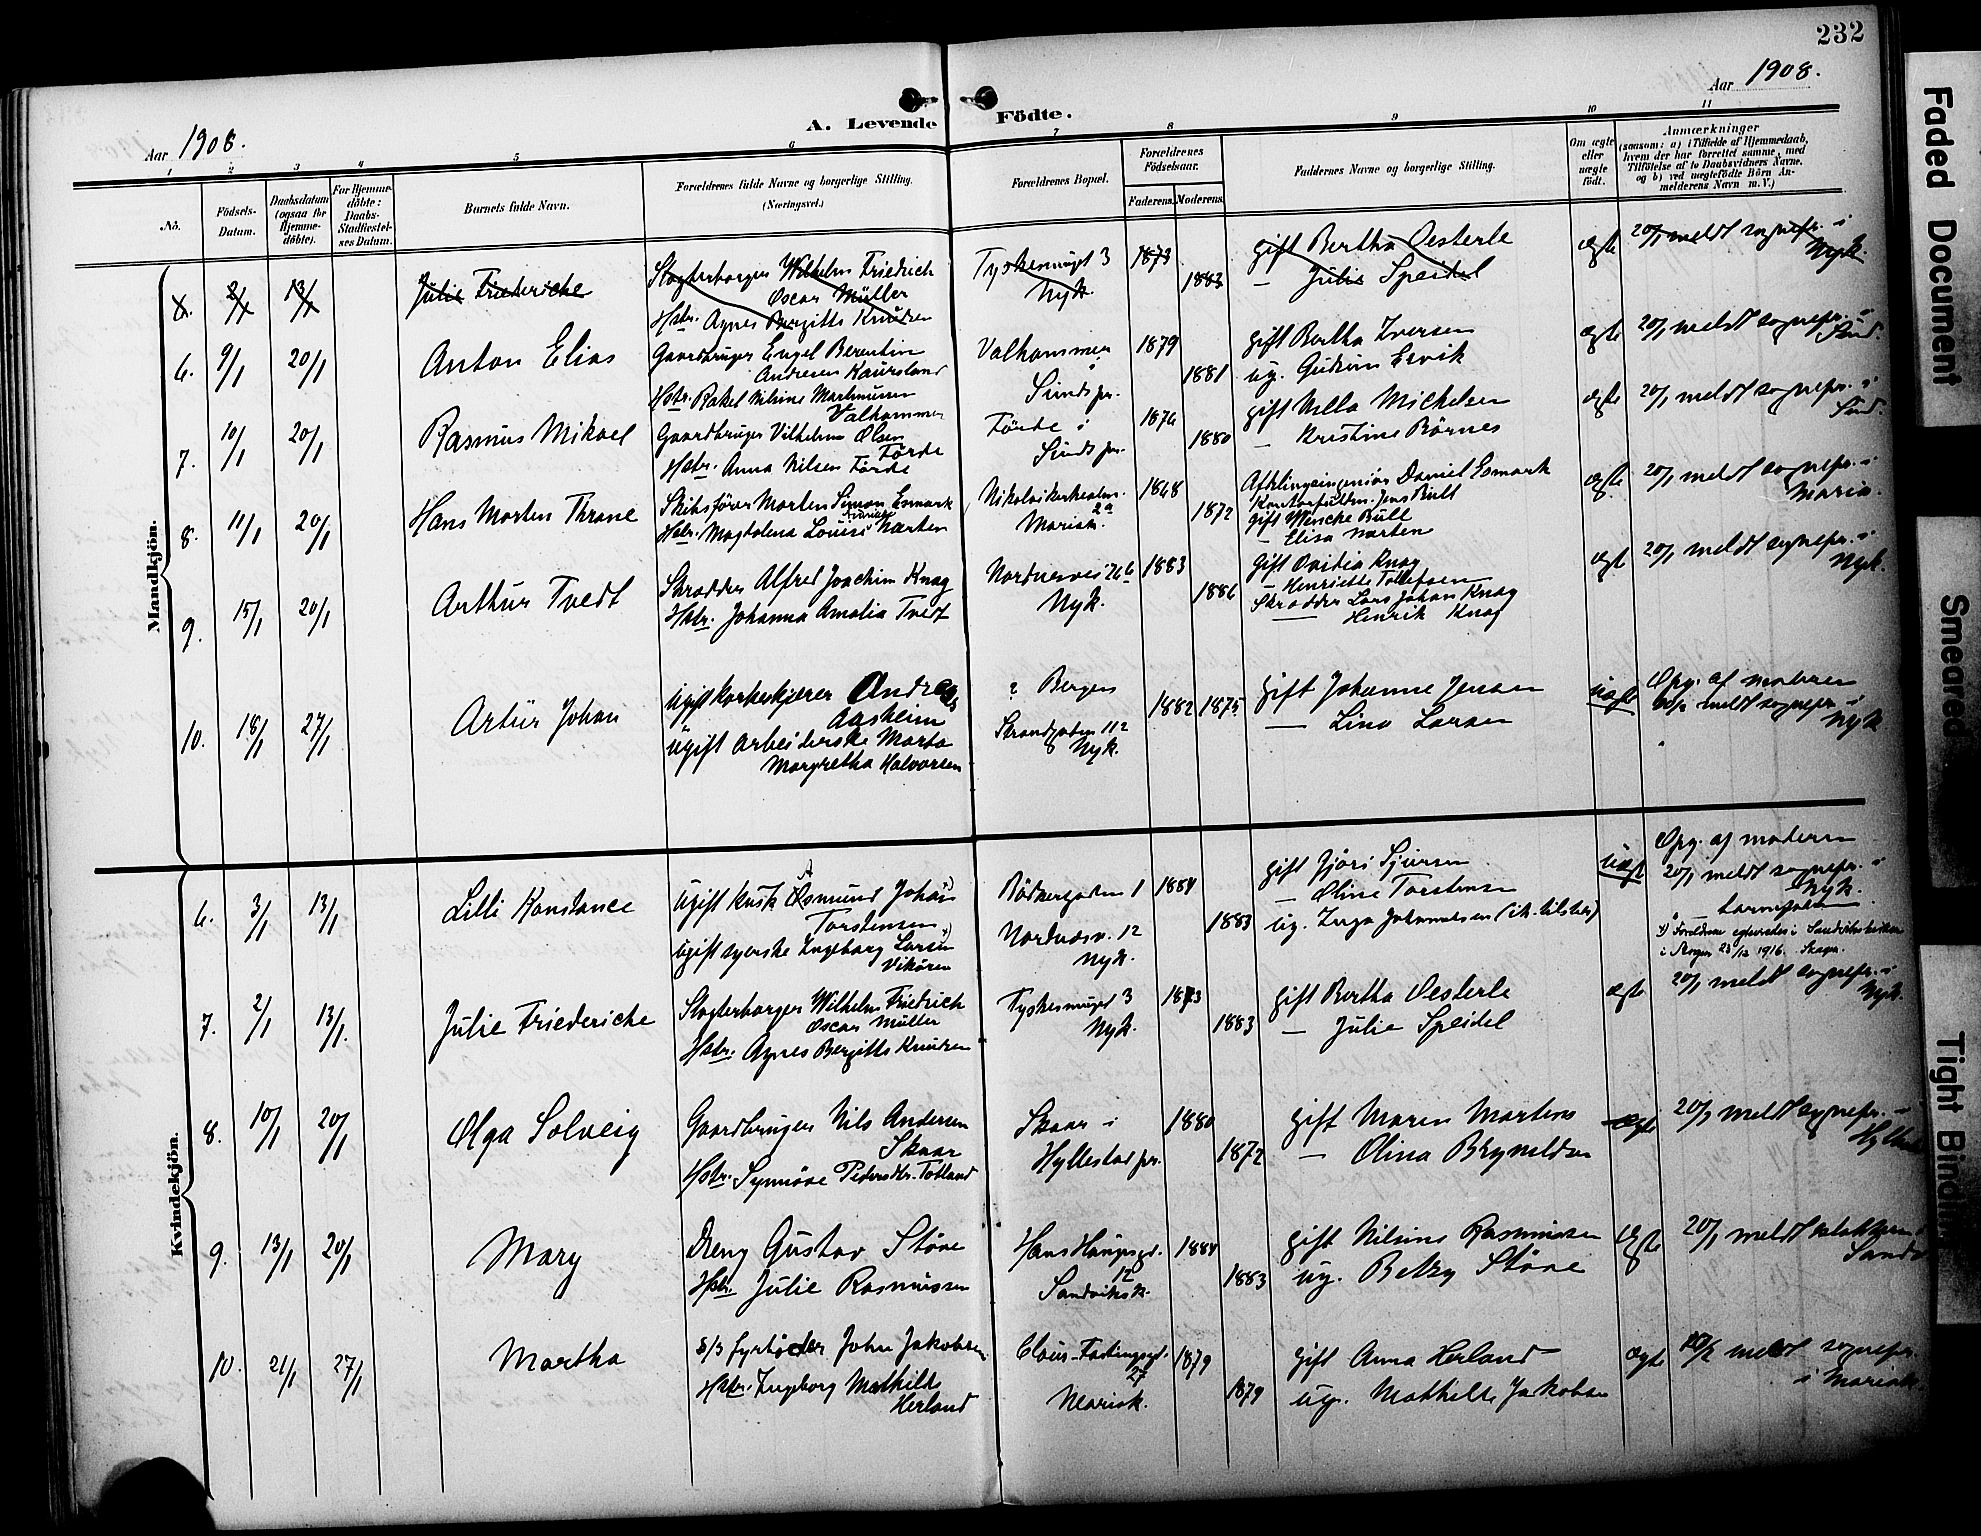 232
Aar 1908.
Aar 1908.
A. Levende Födte.
1 2 3 4 5 6 7 8 9 10 11
No.
Födsels-Datum.
Daabsdatum (ogsaa for Hjemme-döbte).
For Hjemme-döbte: Daabs-Stadfæstel-ses Datum.
Barnets fulde Navn.
Forældrenes fulde Navne og borgerlige Stilling.
(Næringsvei.)
Forældrenes Bopæl.
Forældrenes Födselsaar.
Faderens. Moderens.
Faddernes Navne og borgerlige Stilling.
Om ægte eller uægte födt.
Anmærkninger
(saasom: a) i Tilfælde af Hjemmedaab,
hvem der har forrettet samme, med
Tilföielse af to Daabsvidners Navne,
og b) ved uægtefödte Börn An-
melderens Navn m. V.)
Mandkjön.
2/1 13/1 Julie Friederiche
Slagterborger Wilhelm Friedrich
Oscar Müller
Hstr. Agnes Bergitte Knudsen
Tyskesmuget 3
Nyk.
1873 1883
gift Bertha Oesterle
— Julie Speidel
ægte
20/1 meldt sognepr. i
Nyk.
6. 9/1 20/1 Anton Elias
Gaardbruger Engel Berentin
Andresen Kaursland
Hstr. Rakel Nilsine Martinussen
Valhammer
Valhammer i
Sunds pr.
1879 1881
gift Bertha Iversen
ug. Gudrun Ervik
ægte
20/1 meldt sognepr. i
Sund.
7. 10/1 20/1 Rasmus Mikael
Gaardbruger Vilhelm Olsen
Förde
Hstr. Anna Nilsen Förde
Förde i
Sunds pr.
1876 1880
gift Nella Michelsen
— Kristine Börnes
ægte
20/1 meldt sognepr. i
Sund.
8. 11/1 20/1 Hans Morten Thrane
Skibsförer Morten Simon Esmark
Hstr. Magdalena Louise Narten
Nikolaikirkealm. 2a
Mariak.
1868 1872
Daniel Esmark
Jens Bull
gift Wencke Bull
— Elisa Narten
ægte
20/1 meldt sognepr. i
Maria.
9. 15/1 20/1 Arthur Tvedt
Skrædder Alfred Joachim Knag
Hstr. Johanna Amalia Tvedt
Nordnesvei 26b
Nyk.
1883 1886
gift Ovidia Knag
— Henriette Tollefsen
Skrædder Lars Johan Knag
— Henrik Knag
ægt
20/1 meldt sognepr. i
Nyk.
10. 18/1 27/1 Artur Johan
Ugift Andreas
Aasheim
Ugift Arbeiderske Marta
Margretha Halvorsen
? Bergen
Strandgaden 112
Nyk.
1882 1875
gift Johanne Jensen
— Lina Larsen
uægt
Opg. af moderen
meldt sognepr. i
Nyk
Kvindekjön.
6. 3/1 13/1 Lilli Konstance
Ugift Kusk Asmund Johan
Torstensen
Ugift syerske Ingeborg Larsen
Vikören
Bödkergaden 1
Nordnæsv. 12
Nyk.
1884 1883
gift Gjöri Sjursen
— Oline Torstensen
ug. Inga Johannesen (ik. tilsted)
uægt
Opg. af moderen
20/1 meldt sognepr. i
Nyk.
Forældrene egteviedes i Sandvikskirken
i Bergen 23/12 1916.
7. 2/1 13/1. Julie Friederiche
Slagterborger Wilhelm Friedrich
Oscar Müller
Hstr. Agnes Bergitte Knudsen
Tyskesmuget 3
Nyk.
1873 1883
gift Bertha Oesterle
— Julie Speidel
ægte
20/1 meldt sognepr. i
Nyk.
8. 10/1 20/1 Olga Solveig
Gaardbruger Nils Andersen
Skaar
Hstr. Synnöve Pedersdtr. Totland
Skaar i
Hyllestad pr.
1880 1872
gift Maren Martens
— Olina Brynildsen
ægte
20/1 meldt sognepr. i
9. 13/1 20/1 Mary
Dreng Gustav Störe
Hstr. Julie Rasmussen
Hans Haugesgd.
12
Sandviksk.
1884 1883
gift Nilsine Rasmussen
ug. Betzy Störe
ægte
20/1 meldt
10. 21/1 27/1 Martha
S/S fyrböder John Jakobsen
Hstr. Ingeborg Mathilde
Herland
Claus Fastingsgd.
27
Mariak.
1879 1879
gift Anna Herland
ug. Mathilde Jakobsen
ægte
meldt sognepr.
i Mariak
Faded Document
Smeared
Tight Bindin